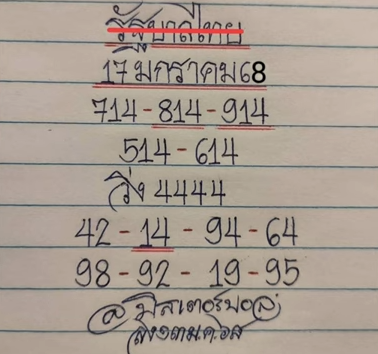 รัฐบาลไทย
17 มกราคม68
714-814-914
514-614
วิ่ง 4444
42-14-94-64
98-92-19-95
@มิสเตอร์บอล